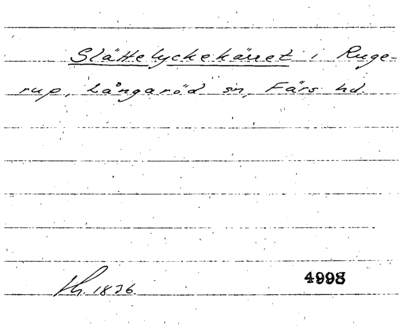 Slättelyckekärret i Ruge-
rup, Långaröd sn, Färs hd.
1826. 4998